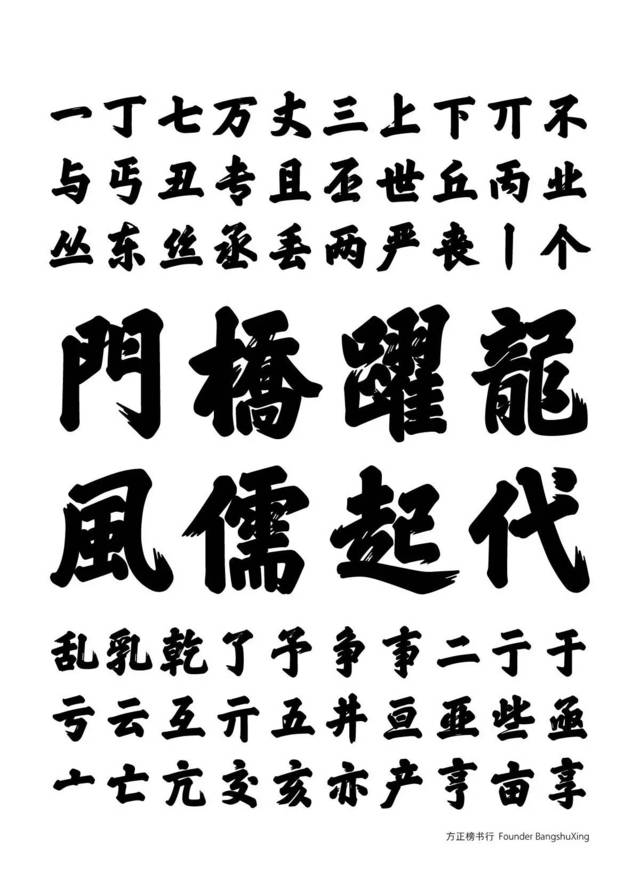 一丁七万丈三上下丌不
与丐丑专且丕世丘丙业
丛东丝丞丢两严丧丨个
門橋躍龍
風儒起代
乱乳乾了予争事二亍于
亏云互亓五井亘亚些亟
亠亡亢交亥亦产亨亩享
方正榜书行 Founder BangshuXing